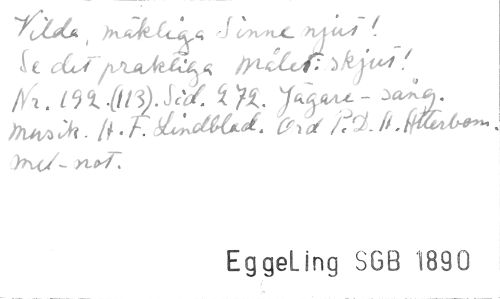 Vilda, mäktiga Sinne njut!
Se det praktiga målet: skjut!
Nr. 192. (113). Sid. 272. Jägare-sång.
musik. A. F. Lindblad. Ord P. D. A. Atterbom.
mel-not.
EggeLing SGB 1890